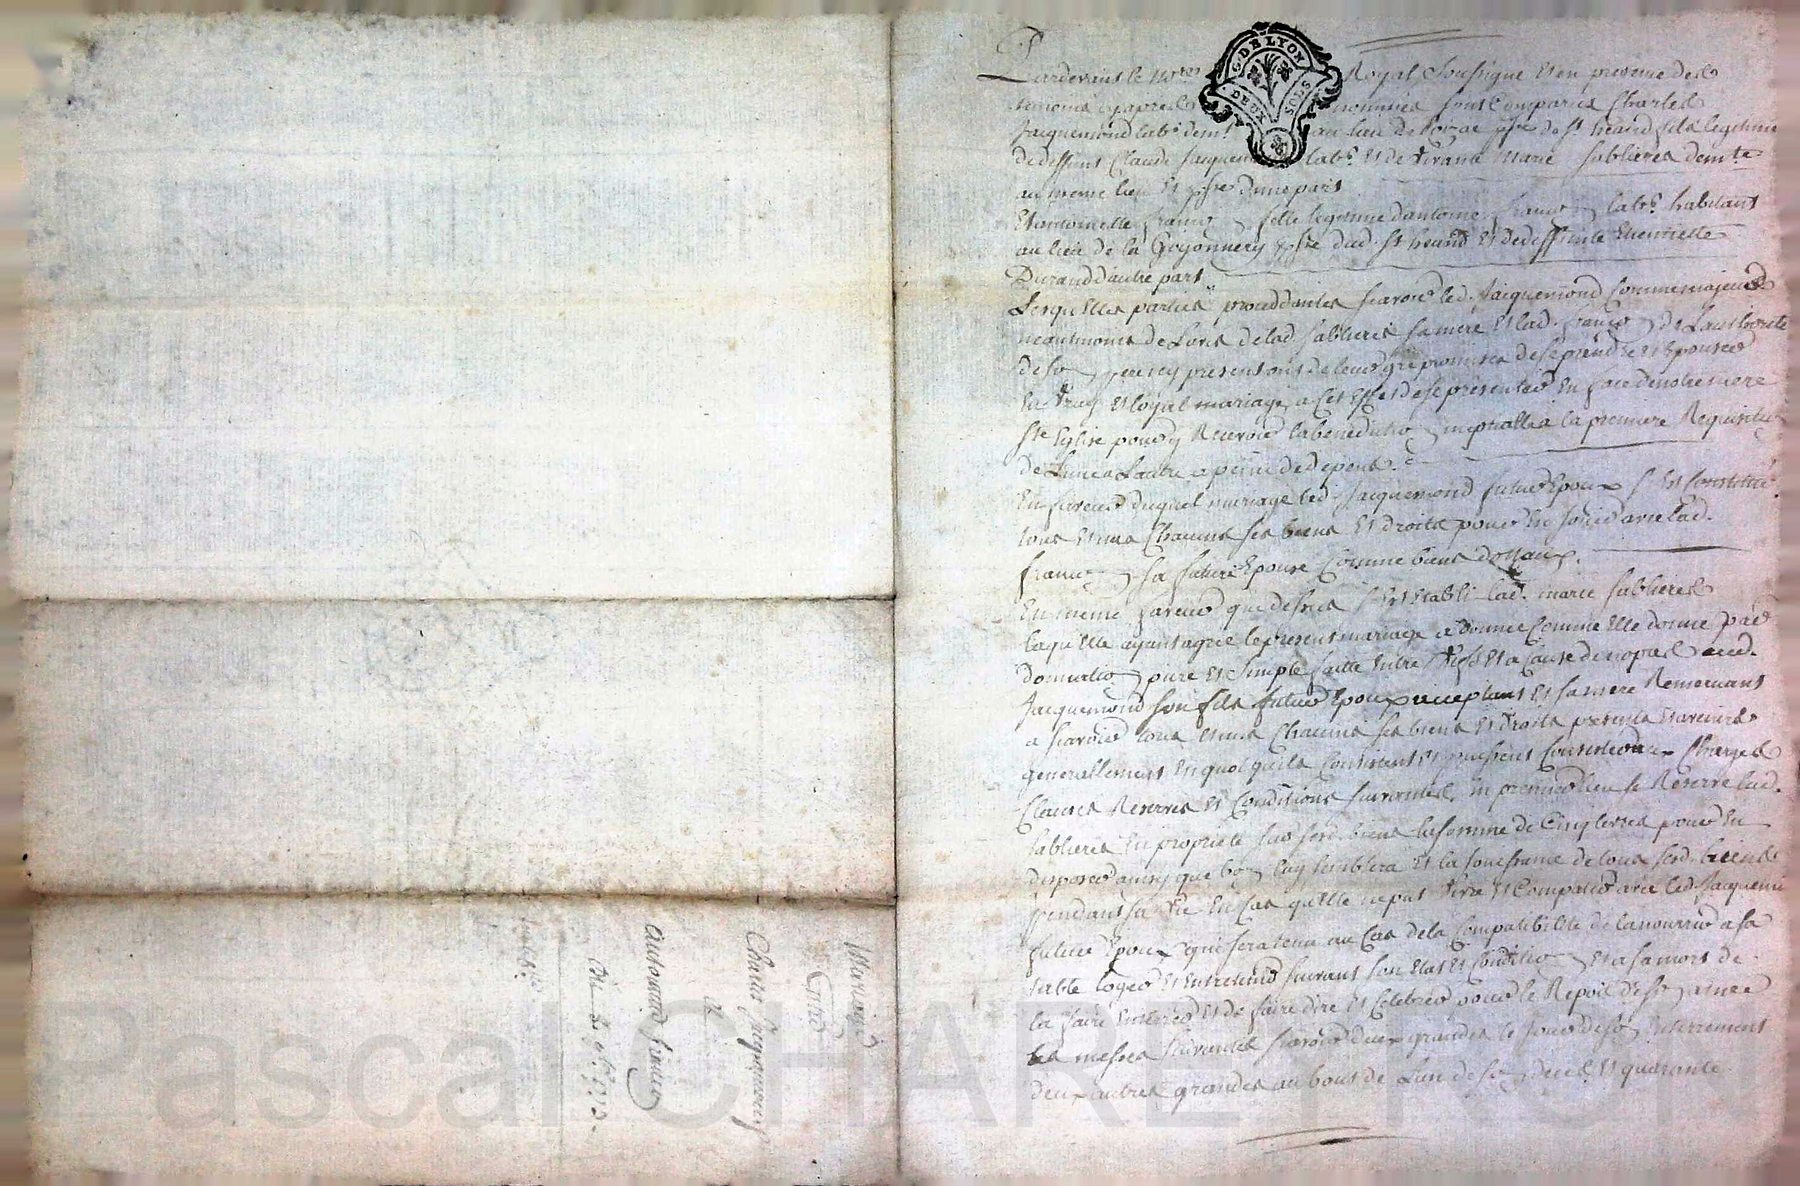 G. DE LYON
DEUX SOLS
Pardevant le no.re Royal soussigné et en presence des
temoins cy apres nommés sont comparus Charles
Jacquemond lab.r dem.t au lieu de p.sse de S.t heand fils legitime
de deffunt Claude Jacquemond lab.r et de vivante Marie Sablieres dem.te
au meme lieu et p.sse d'une part
Et antoinette franco fille legitime d'antoine franco lab.r habitant
au lieu de la Goyonnery p.sse dud. S.t heand et de deffunte
Durand d'autre part
Lesquelles parties procedantes scavoir led. Jacquemond comme majeur
neantmoins de l'avis de lad. Sablieres sa mere et lad. franco de l'authorite
de so pere icy present ont de leur gré promis de se prendre et epouser
en vray et loyal mariage a cet effet de se presenter en face de nostre mere
S.te Eglise pour y recevoir la benedictio nuptialle a la premiere requisitio
de l'une a l'autre a peine de depens.
En faveur duquel mariage led. Jacquemond futur epoux s'est constitué
tous et uns chacuns ses biens et droits pour en jouir avec lad.
franco sa future epouse comme biens dottaux.
En meme faveur que dessus s'est etabli lad. marie Sablieres
laquelle ayant agreé le present mariage a donné comme elle donne par
donnatio pure et simple faitte entre vifs et a cause de nopces aud.
Jacquemond son fils futur epoux acceptant et sa mere remerciant
a scavoir tous et uns chacuns ses biens et droits presents et avenirs
generallement en quoi qu'ils consistent et puissent consister aux charges
clauses reserves et conditions suivantes, en premier lieu se reserve lad.
Sablieres en proprieté sur sesd. biens la somme de cinq livres pour en
disposer ainsy que bo luy semblera et la jouissance de tous sesd. biens
pendant sa vie en cas qu'elle ne put vivre et compatir avec led. Jacquemo
futur epoux qui sera tenu au cas de la compatibilité de la nourrir a sa
table loger et entretenir suivant son etat et conditio et a sa mort de
la faire enterrer et de faire dire et celebrer pour le repos de so ame
les messes suivantes scavoir deux grandes le jour de so enterrement
deux autres grandes au bout de l'an de so deces et quarante
Mariage
Entre
Charles Jacquemond
et
antoinette franco
Pascal CHARETRON